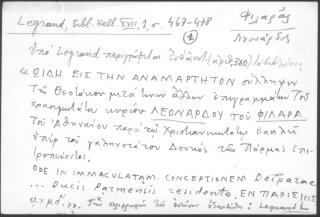 Legrand, Bibl. Hell. XVII, 1, σ. 467-478
Φιλαρᾶς
Λεονάρδος
①
Ὑπὸ Legrand περιγράφεται (ἀριθ. 360)
« ᾨΔΗ ΕΙΣ ΤΗΝ ΑΝΑΜΑΡΤΗΤΟΝ σύλληψιν
τῆς Θεοτόκου μετά τινων ἄλλων ἐπιγραμμάτων τοῦ
κυρίου ΛΕΟΝΑΡΔΟΥ τοῦ ΦΙΛΑΡΑ
τοῦ Ἀθηναίου παρὰ τῷ Χριστιανικωτάτῳ Βασιλεῖ
ὑπὲρ τοῦ γαληνοτάτου Δουκὸς τῆς Πάρμας ἐπι-
τροπεύοντος.
ODE IN IMMACULATAM CONCEPTIONEM Deiparae
... Ducis Parmensis residente, ΕΝ ΠΑΡΙΣΙΟΙΣ
αχμδ΄ ». ὁ Legrand